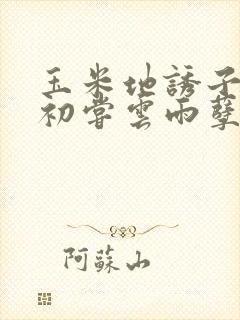 玉米地誘子
初嘗雲雨孽
阿蘇山